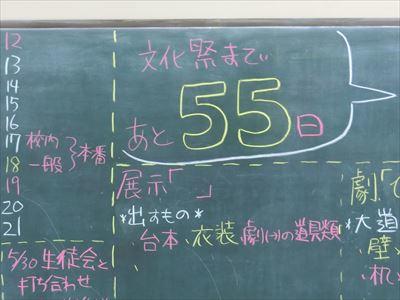 12
13
14
15
16
17 校内
18 一般 }本番
19
20
21
5/30 生徒会と
打ち合わせ
文化祭まで
あと55日
展示「 」
*出すもの*
台本、衣装、劇(→)の道具類
劇「
*大道
・壁
・机